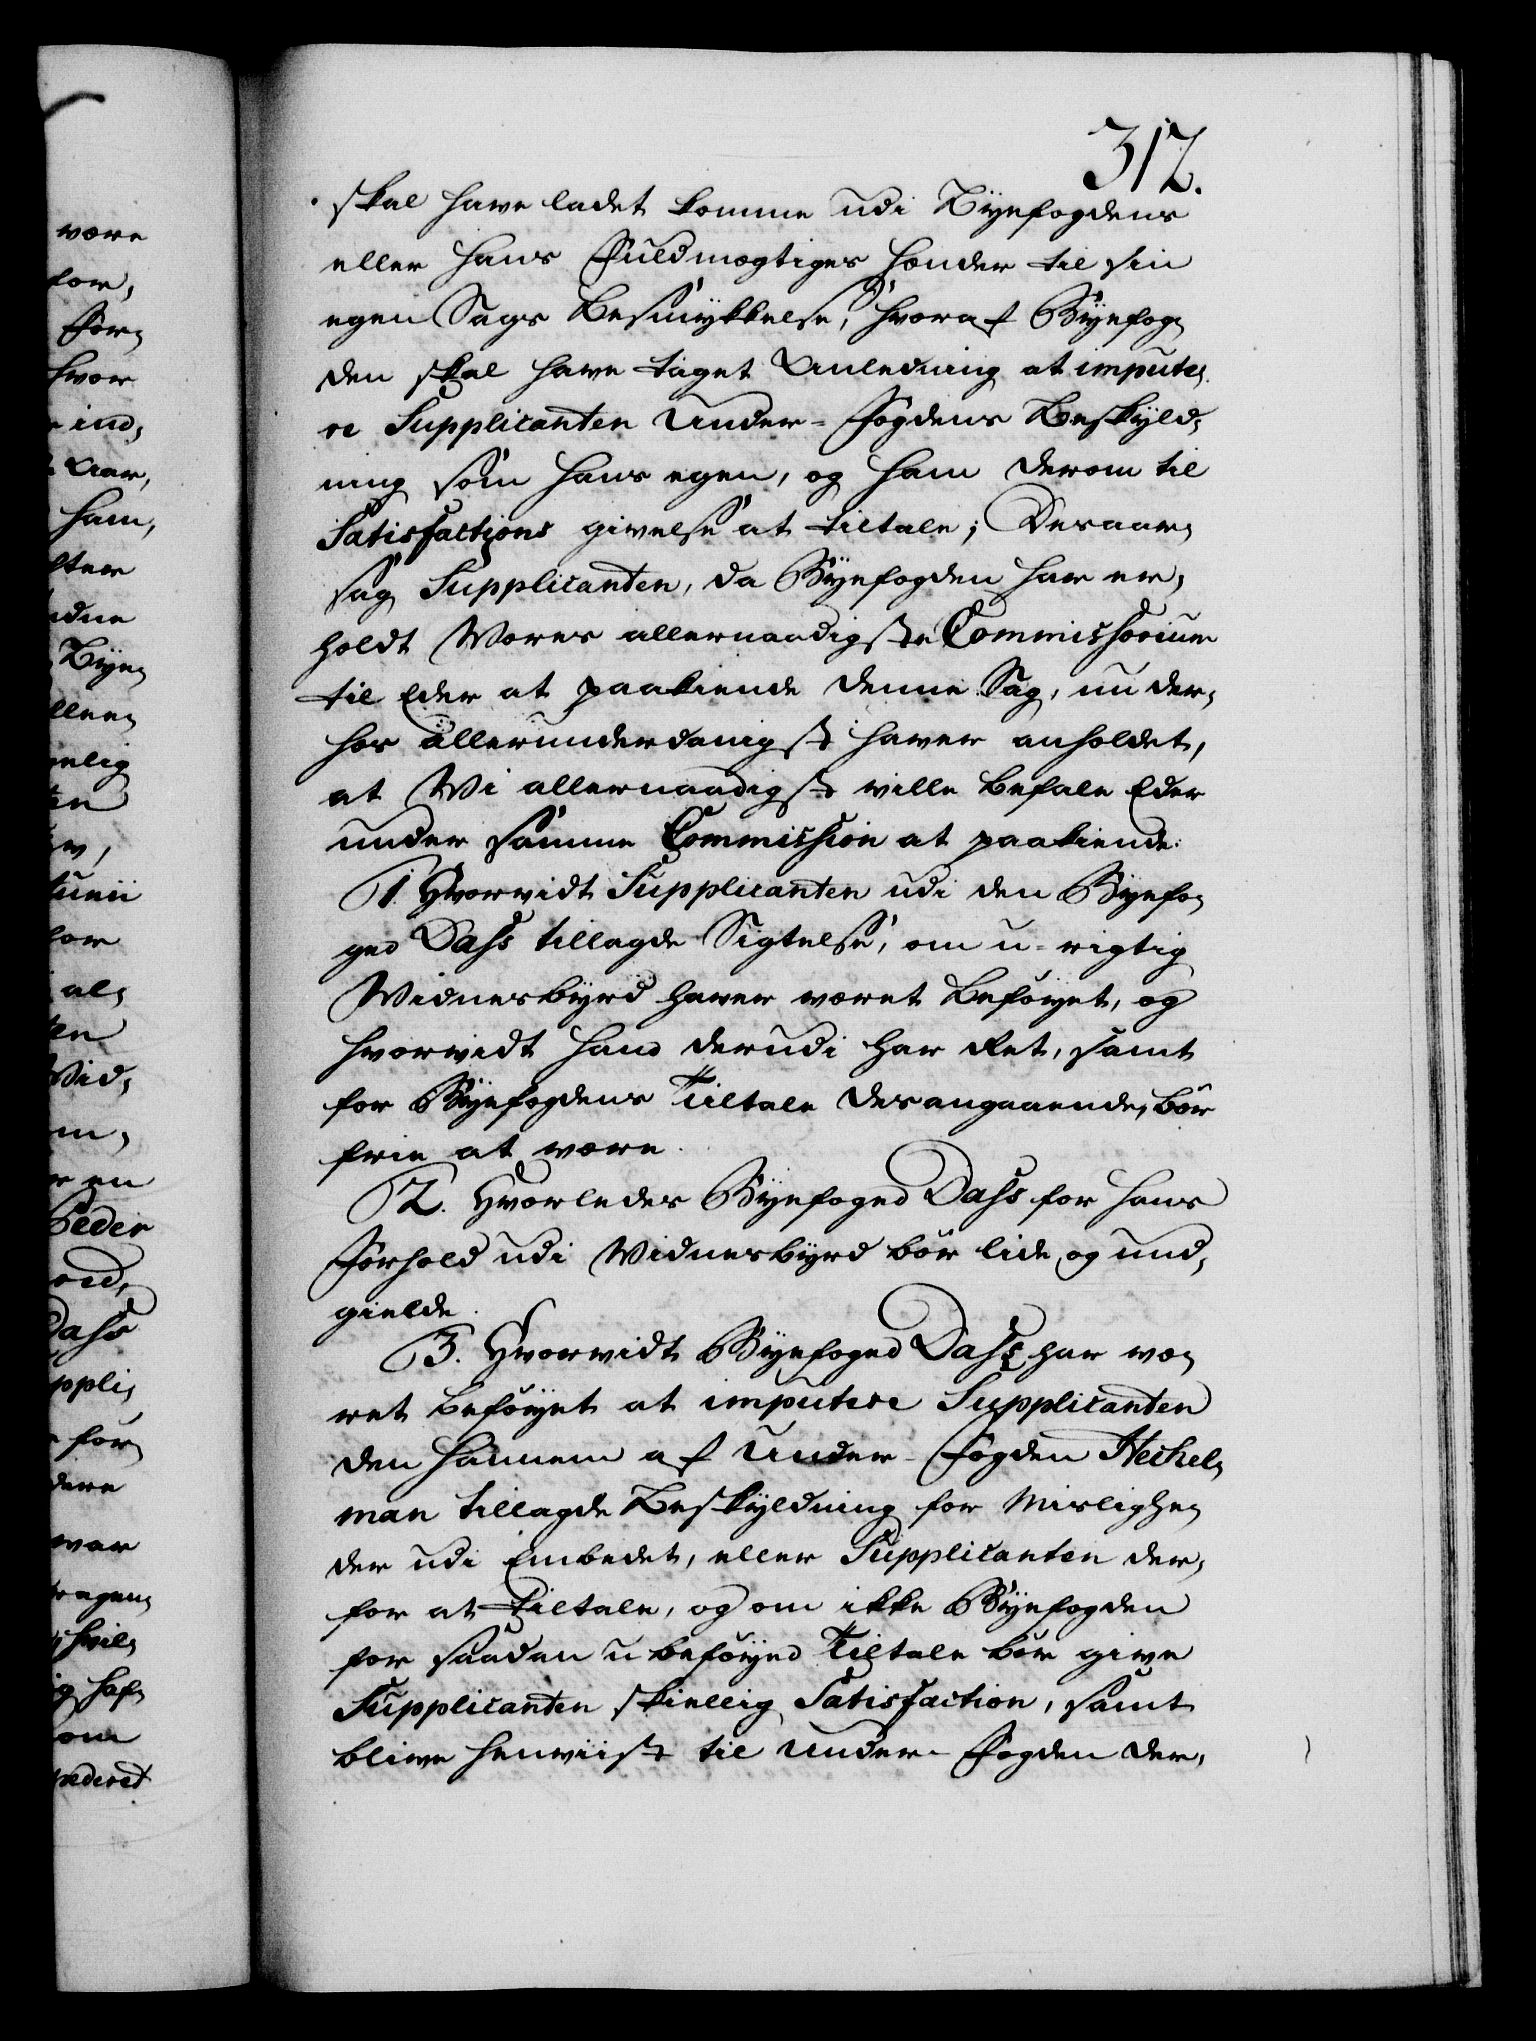 312.
skal have ladet komme udi Byefogdens
eller hans Fuldmægtiges Hænder til sin
egen Sags Besmykkelse, hvoraf Byefog,
den skal have taget Anledning at impute,
re Supplicanten Under-Fogdens Beskyld,
ning som hans egen, og ham derom til
Satisfactions givelse at tiltale; Desaar,
sag Supplicanten, da Byefogden har er,
holdt Vores allernaadigste Commissorium
til Eder at paakiende denne Sag, nu der,
hos allerunderdanigst haver anholdet,
at Wi allernaadigst ville befale Eder
under samme Commission at paakiende:
1. Hvorvidt Supplicanten udi den Byefo,
ged Dass tillagde Sigtelse, om u-rigtig
Widnesbyrd haver været beføyet, og
hvorvidt hand derudi har Ret, samt
for Byefogdens Tiltale desangaaende, bør
frie at være.
2. Hvorledes Byefoged Dass for hans
Forhold udi Widnesbyrd bør lide og und,
gielde.
3. Hvorvidt Byefoged Dass har væ,
ret beføyet at imputere Supplicanten
den hannem af Under-Fogden Heckel,
man tillagde Beskyldning for Mislighe,
der udi Embedet, eller Supplicanten der,
for at tiltale, og om ikke Byefogden
for saadan u beføyed Tiltale bør give
Supplicanten skiellig Satisfaction, samt
blive henviist til Under-Fogden der,